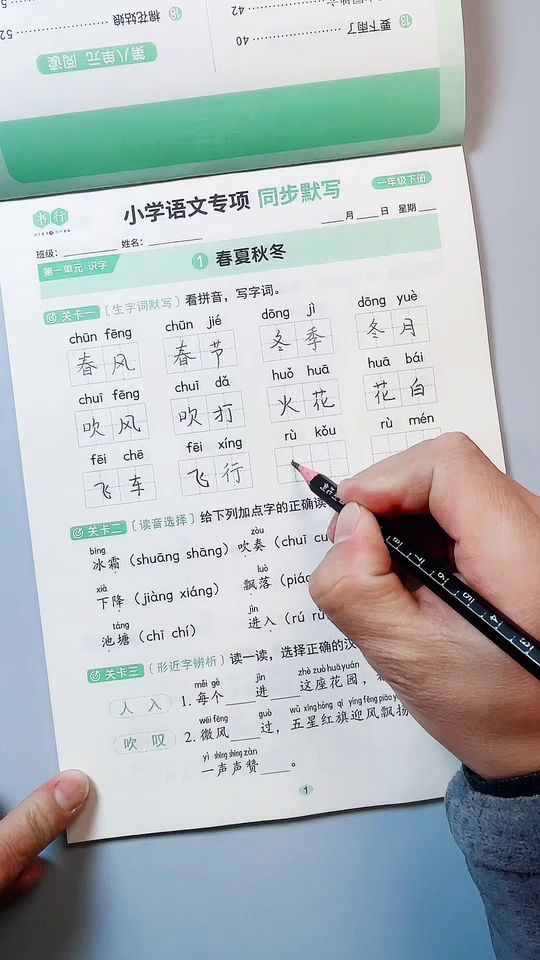 18 棉花姑娘 ………… 52
13 要下雨了 ………… 40
42
第八单元 阅读
书行
小学语文专项 同步默写
一年级下册
班级：________ 姓名：________ ____月____日 星期____
第一单元 识字
1 春夏秋冬
关卡一 〔生字词默写〕看拼音，写字词。
chūn fēng chūn jié dōng jì dōng yuè
春风 春节 冬季 冬月
chuī fēng chuī dǎ huǒ huā huā bái
吹风 吹打 火花 花白
fēi chē fēi xíng rù kǒu rù mén
飞车 飞行
关卡二 〔读音选择〕给下列加点字的正确读
bīng zòu
冰霜（shuāng shāng） 吹奏（chuī cu
xià luò
下降（jiàng xiáng） 飘落（piāo
táng jìn
池塘（chī chí） 进入（rú rù
关卡三 〔形近字辨析〕读一读，选择正确的汉
měi gè jìn zhè zuò huā yuán
人 入 1. 每个____进____这座花园，
wēi fēng guò wǔ xīng hóng qí yíng fēng piāo y
吹 叹 2. 微风____过，五星红旗迎风飘扬
yì shēng shēng zàn
一声声赞____。
1